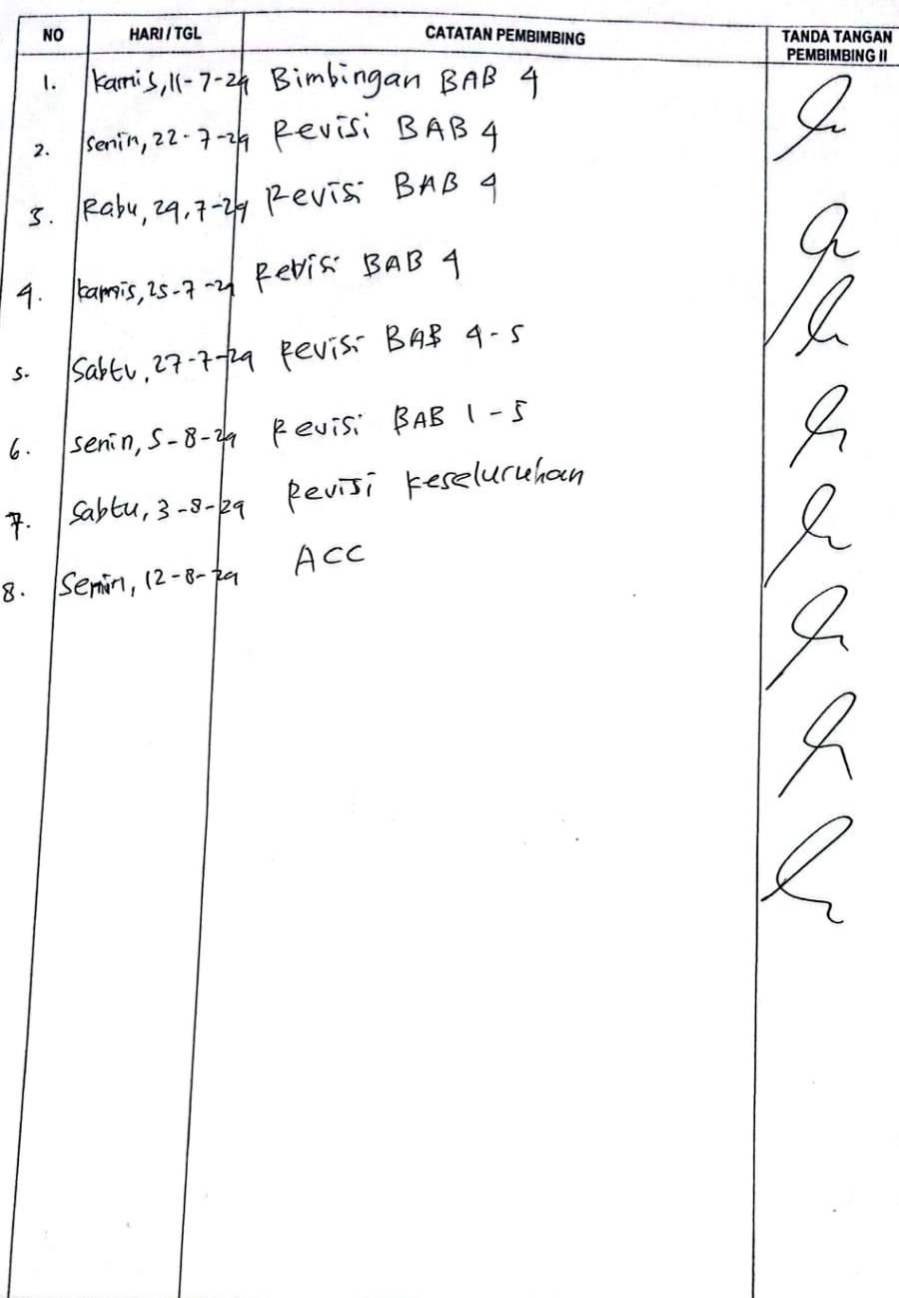 NO HARI / TGL CATATAN PEMBIMBING TANDA TANGAN PEMBIMBING II
1. Kamis, 11-7-24 Bimbingan BAB 4
2. Senin, 22-7-24 Revisi BAB 4
3. Rabu, 24,7-24 Revisi BAB 4
4. Kamis, 25-7-24 Revisi BAB 4
5. Sabtu, 27-7-24 Revisi BAB 4-5
6. Senin, 5-8-24 Revisi BAB 1-5
7. Sabtu, 3-8-24 Revisi Keseluruhan
8. Senin, 12-8-24 ACC